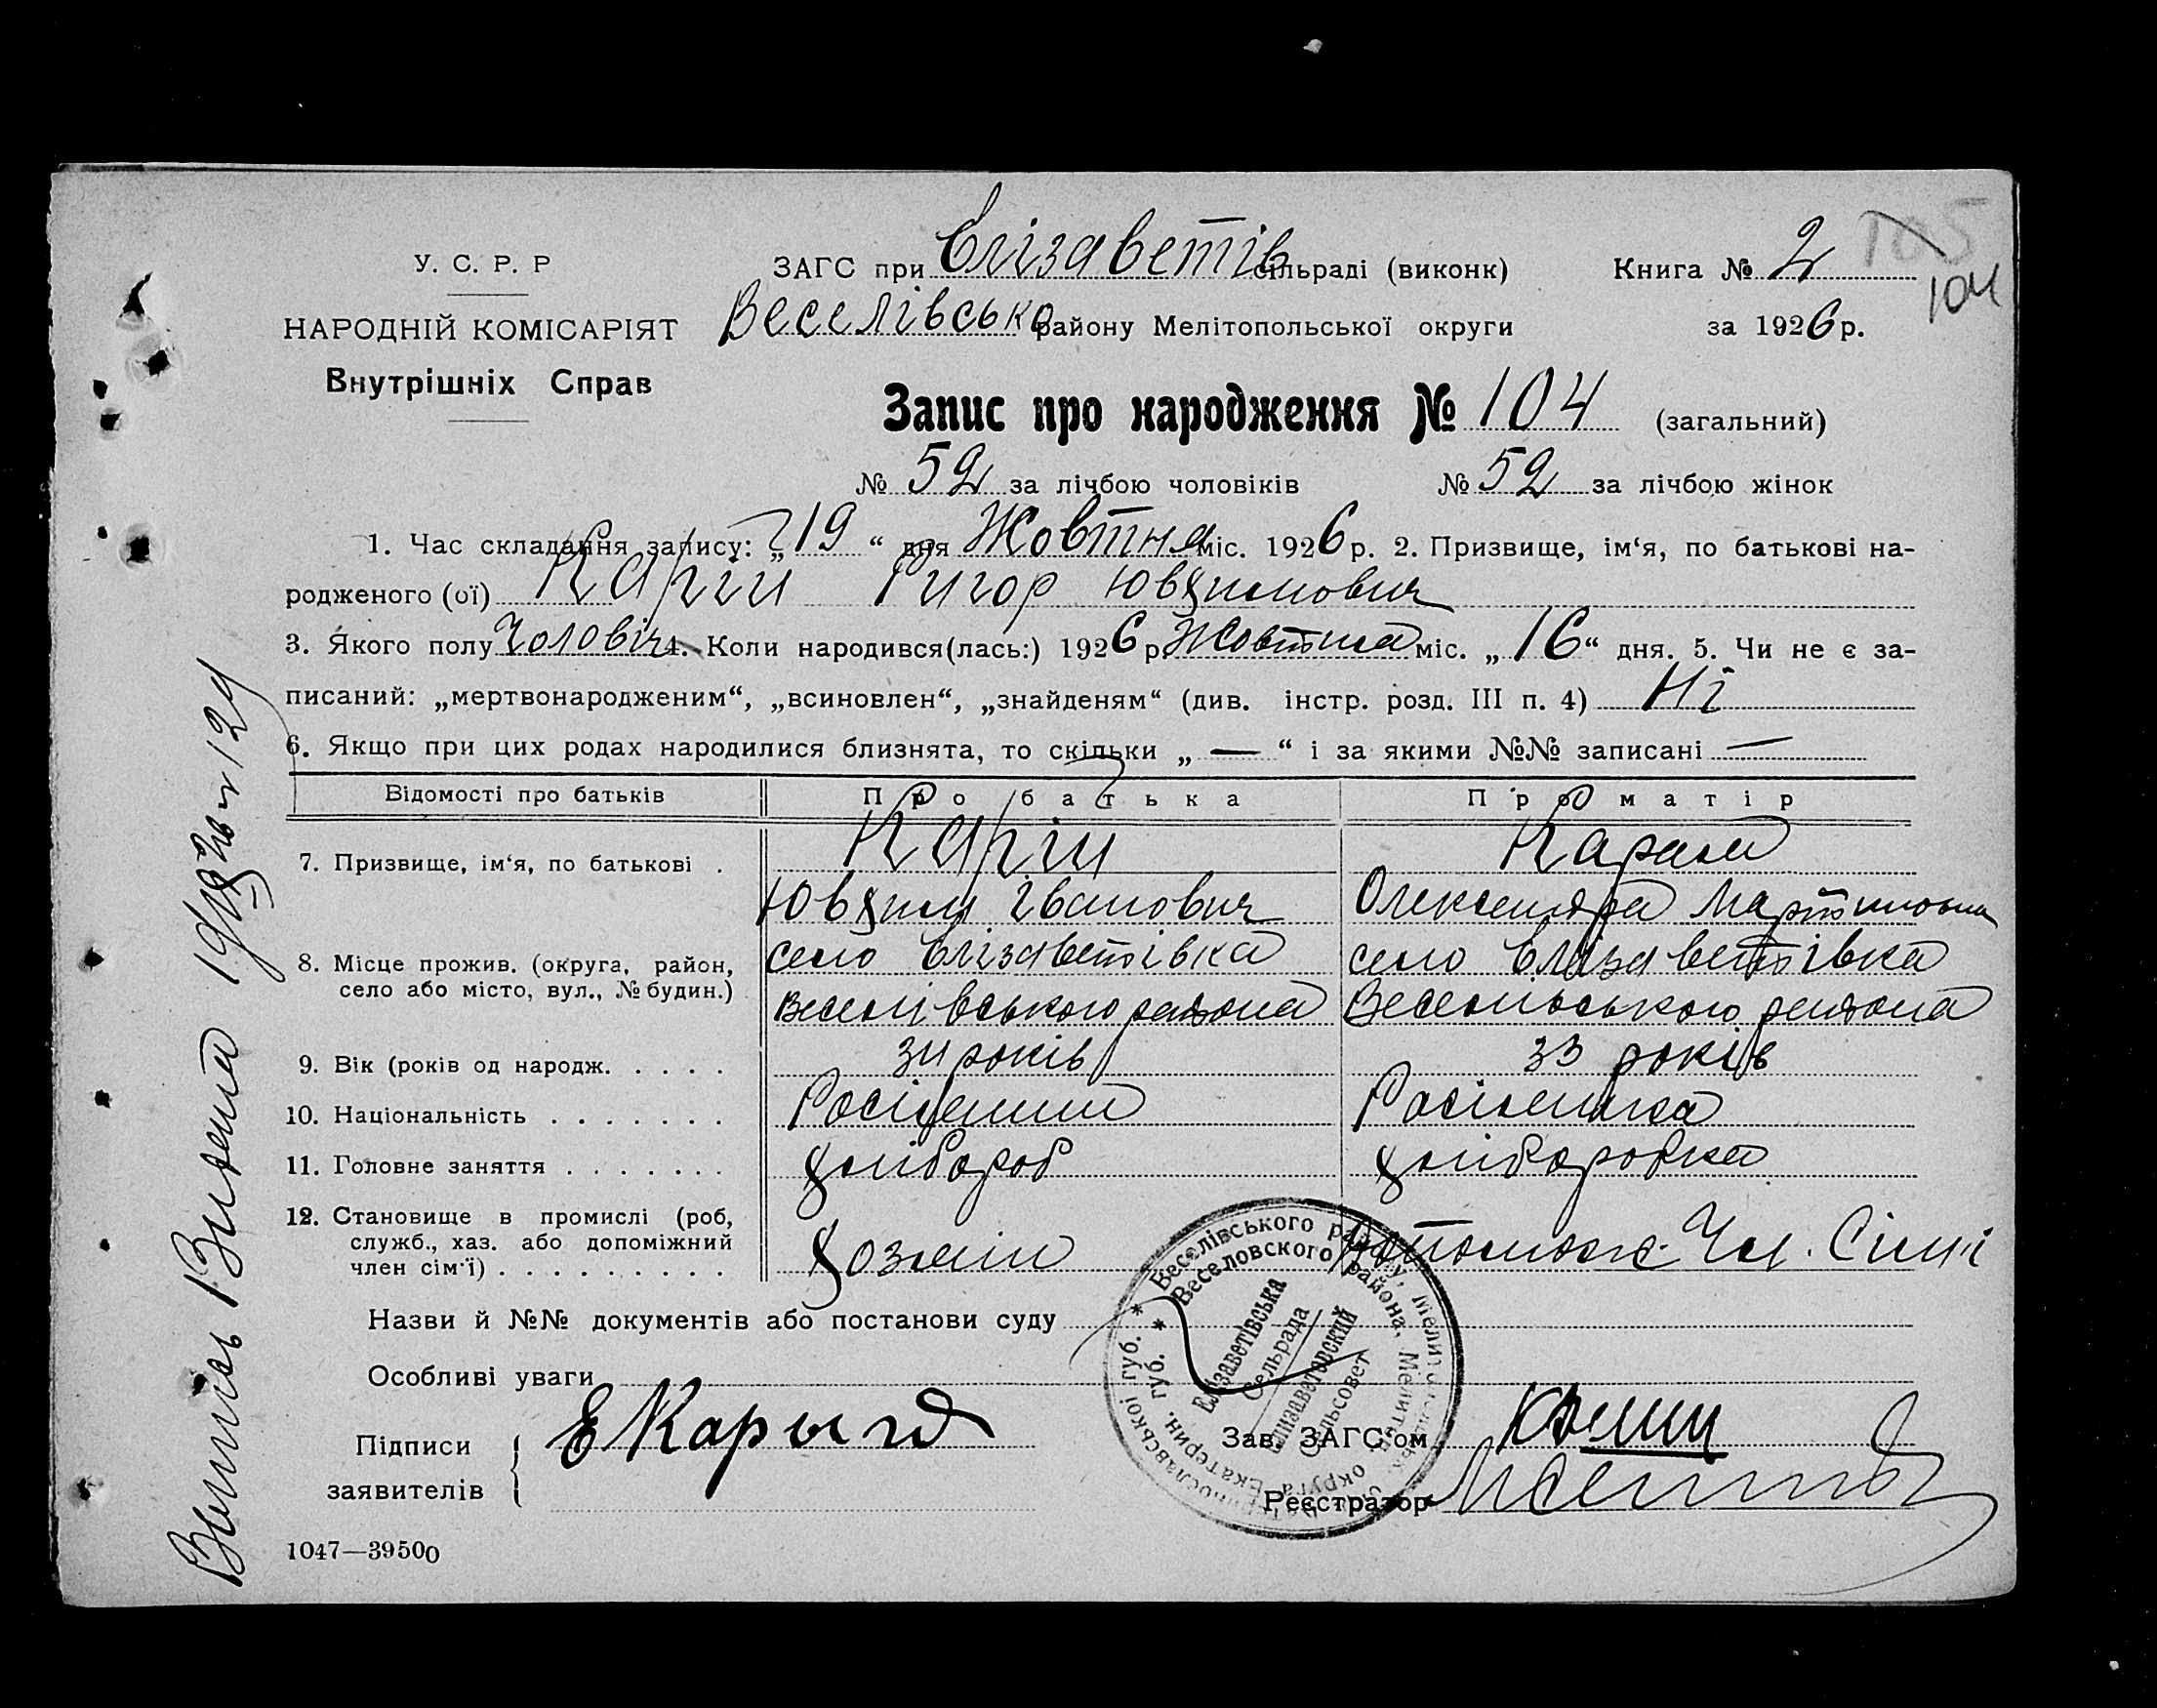 У. С. Р. Р
НАРОДНІЙ КОМІСАРІЯТ
Внутрішніх Справ
ЗАГС при Єлізаветів сільраді (виконк) Книга № 2 105
104
Веселівсько району Мелітопольської округи за 1926 р.
Запис про народження № 104 (загальний)
№ 52 за лічбою чоловіків № 52 за лічбою жінок
1. Час складання запису: „19“ дня Жовтня міс. 1926 р. 2. Призвище, ім‘я, по батькові на-
родженого (ої) Ригор
3. Якого полу Чоловіч 4. Коли народився(лась:) 1926 р. Жовтня міс. „16“ дня. 5. Чи не є за-
писаний: „мертвонародженим“, „всиновлен“, „знайденям“ (див. інстр. розд. III п. 4) Ні
6. Якщо при цих родах народилися близнята, то скільки „—“ і за якими №№ записані —
Відомості про батьків Про батька Про матір
7. Призвище, ім‘я, по батькові .
Іванович Олександра Мартиновна
8. Місце прожив. (округа, район, село Єлізаветівка село Єлізаветівка
село або місто, вул., № будин.) Веселівського района Веселівського района
9. Вік (років од народж. . . . . 34 років 33 років
10. Національність . . . . . . . Росіянин Росіянка
11. Головне заняття . . . . . . . хлібороб хліборобка
12. Становище в промислі (роб,
служб., хаз. або допоміжний хозяін допомож. Чл. Сімі
член сім‘ї) . . . . . . . . .
Назви й №№ документів або постанови суду
Особливі уваги
Підписи
заявителів
Е
Зав. ЗАГС‘ом
Реєстратор
1047—39500
Веселівського району, Мелітопольськ.
Веселовского района, Мелитоп. округа Екатерин. губ.
Елізаветівська
Сельрада
Елизаветовский
Сельсовет